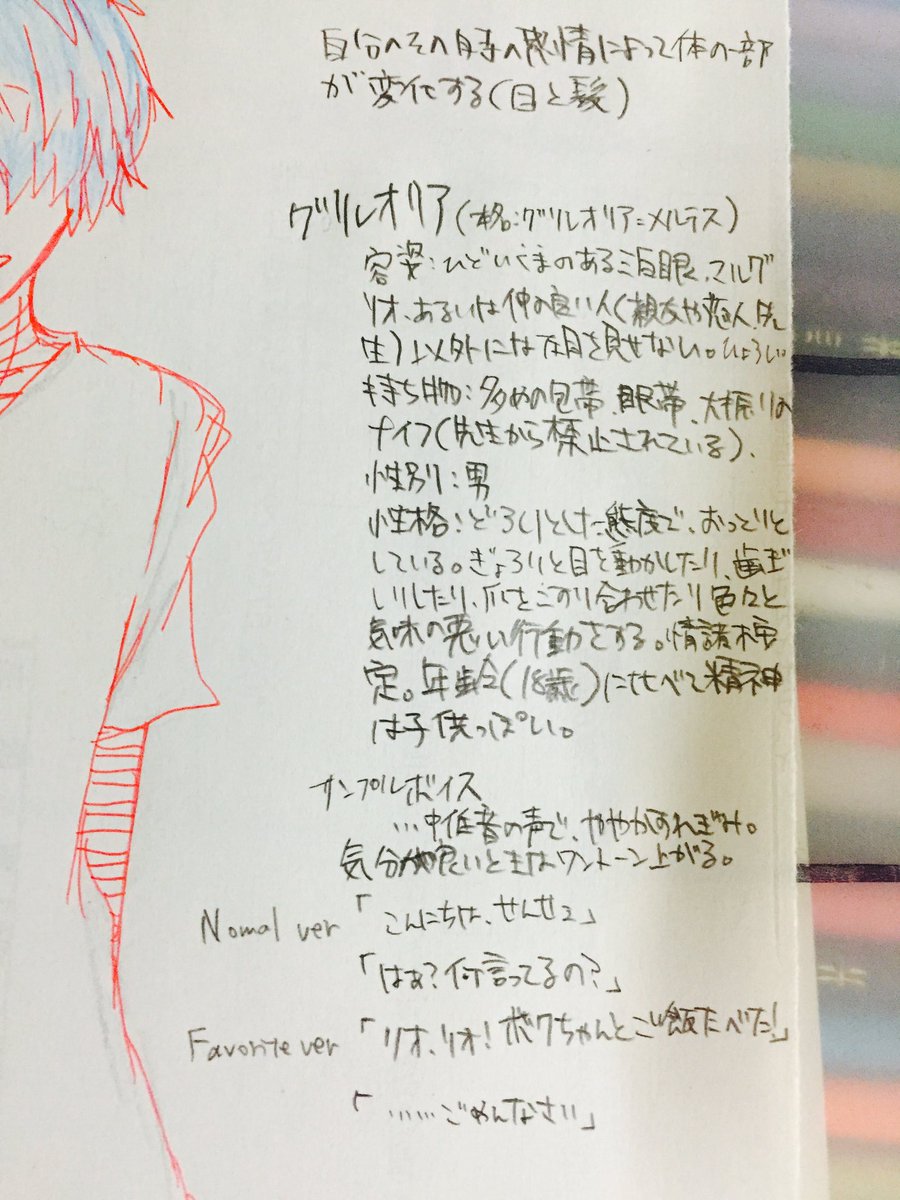 自分のその時の感情によって体の一部
が変化する(目と髪)
グリルオリア(本格:グリルオリア=メルテス)
容姿:ひどいくまのある三白眼、マルグ
リオ、あるいは仲の良い人(親友や恋人、先
生)以外には左目を見せない。ひょろい。
持ち物:多めの包帯、眼帯、大振りの
ナイフ(先生から禁止されている)、
性別:男
性格:どろりとした態度で、おっとりと
している。ぎょろりと目を動かしたり、歯ぎ
しりしたり、爪をこすり合わせたり色々と
気味の悪い行動をする。情緒不安
定。年齢(18歳)に比べて精神
は子供っぽい。
サンプルボイス
…中低音の声で、ややかすれぎみ。
気分が良いときはワントーン上がる。
Nomal ver「こんにちは、せんせェ」
「はぁ?何言ってるの?」
Favorite ver「リオ、リオ!ボクちゃんとご飯たべた!」
「……ごめんなさい」